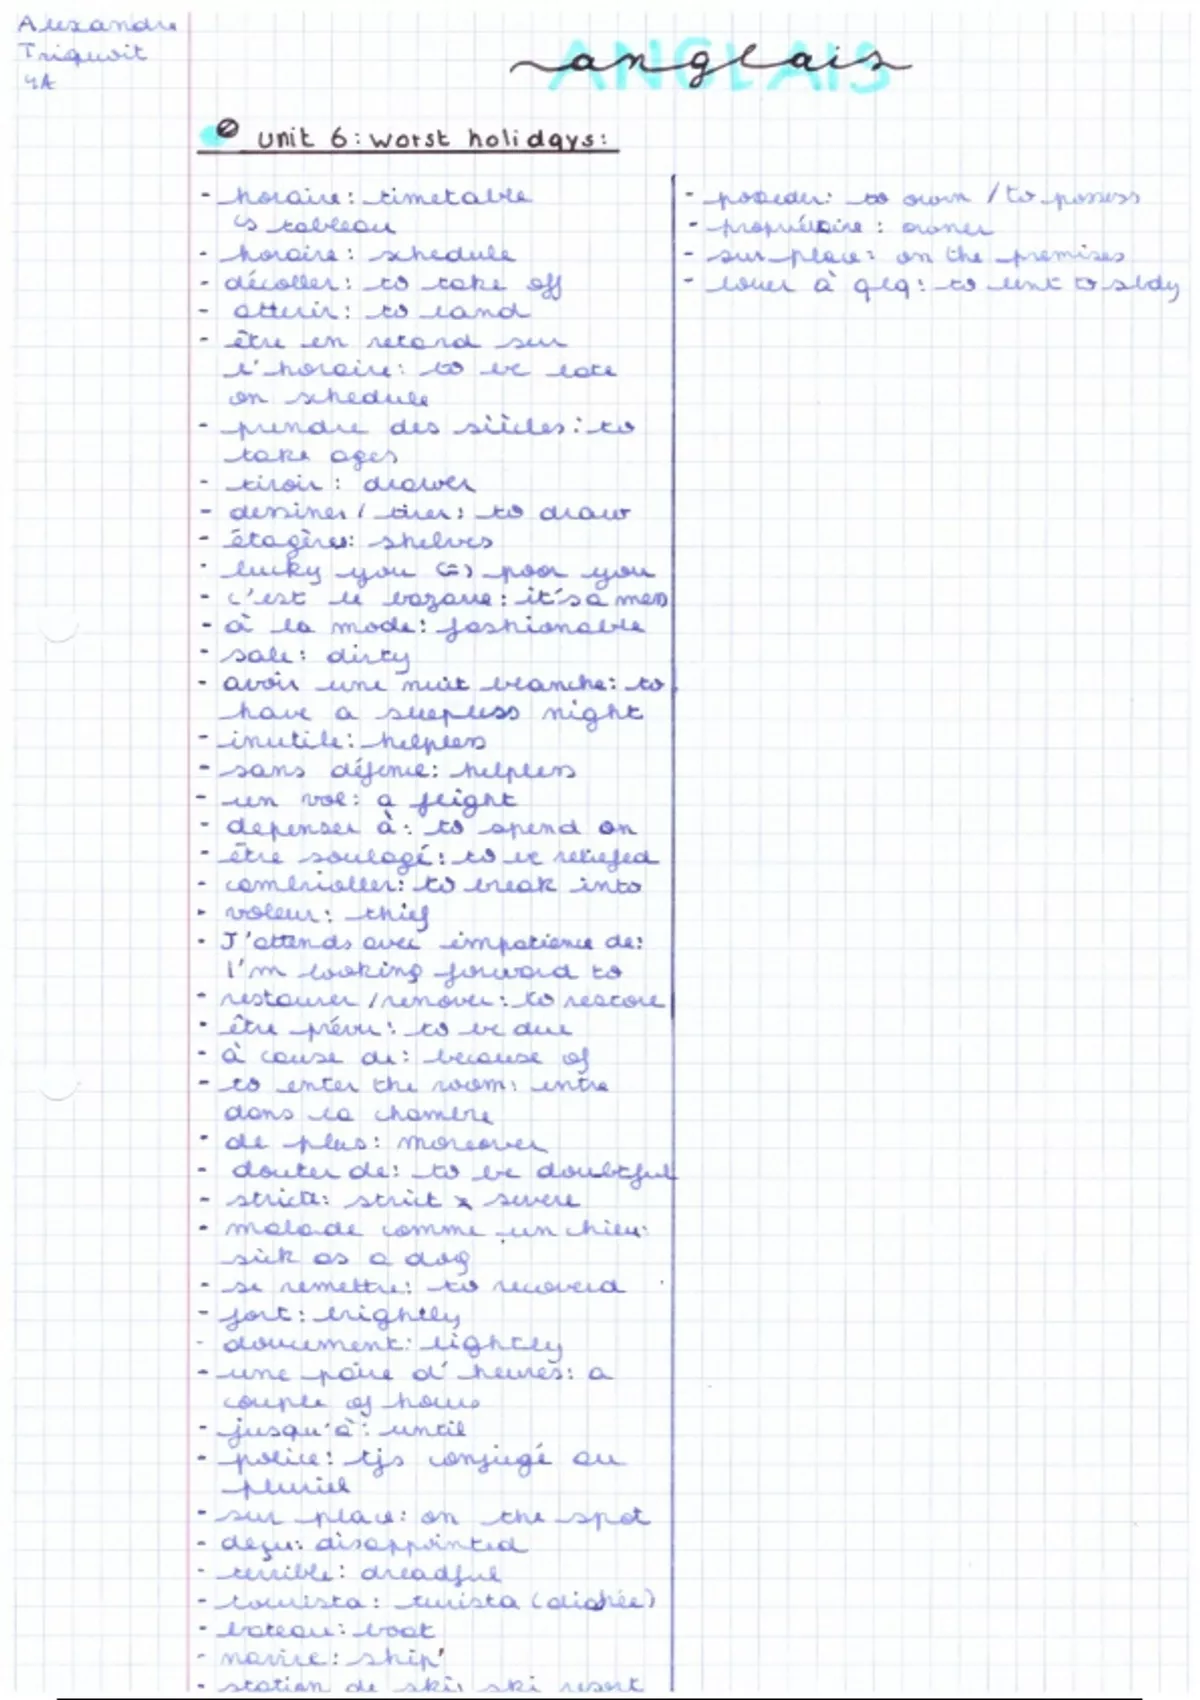 Alexandre
Triquoit
4A
ANGLAIS
anglais
unit 6: worst holidays:
- horaire: timetable
↳ tableau
- horaire: schedule
- décoller: to take off
- atterir: to land
- être en retard sur
l'horaire: to be late
on schedule
- prendre des siècles: to
take ages
- tiroir: drawer
- dessiner / tirer: to draw
- étagères: shelves
- lucky you (=) poor you
- c'est le bazare: it's a mess
- à la mode: fashionable
- sale: dirty
- avoir une nuit blanche: to
have a sleepless night
- inutile: helpless
- sans défense: helpless
- un vol: a flight
- depenser à: to spend on
- être soulagé: to be reliefed
- cambrioller: to break into
- voleur: thief
- J'attends avec impatience de:
I'm looking forward to
- restaurer / renover: to restore
- être prévu: to be due
- à cause de: because of
- to enter the room: entre
dans la chambre
- de plus: moreover
- douter de: to be doubtful
- stricte: strict x severe
- malade comme un chien:
sick as a dog
- se remettre: to recoverd
- fort: brightly
- doucement: lightly
- une paire d'heures: a
couple of hours
- jusqu'à: until
- police: tjs conjugé au
pluriel
- sur place: on the spot
- deçu: disappointed
- terrible: dreadful
- tourista: turista (diahée)
- bateau: boat
- navire: ship
- station de ski: ski resort
- posseder: to own / to possess
- propriétaire: owner
- sur place: on the premises
- louer à qlq: to lent to sbdy